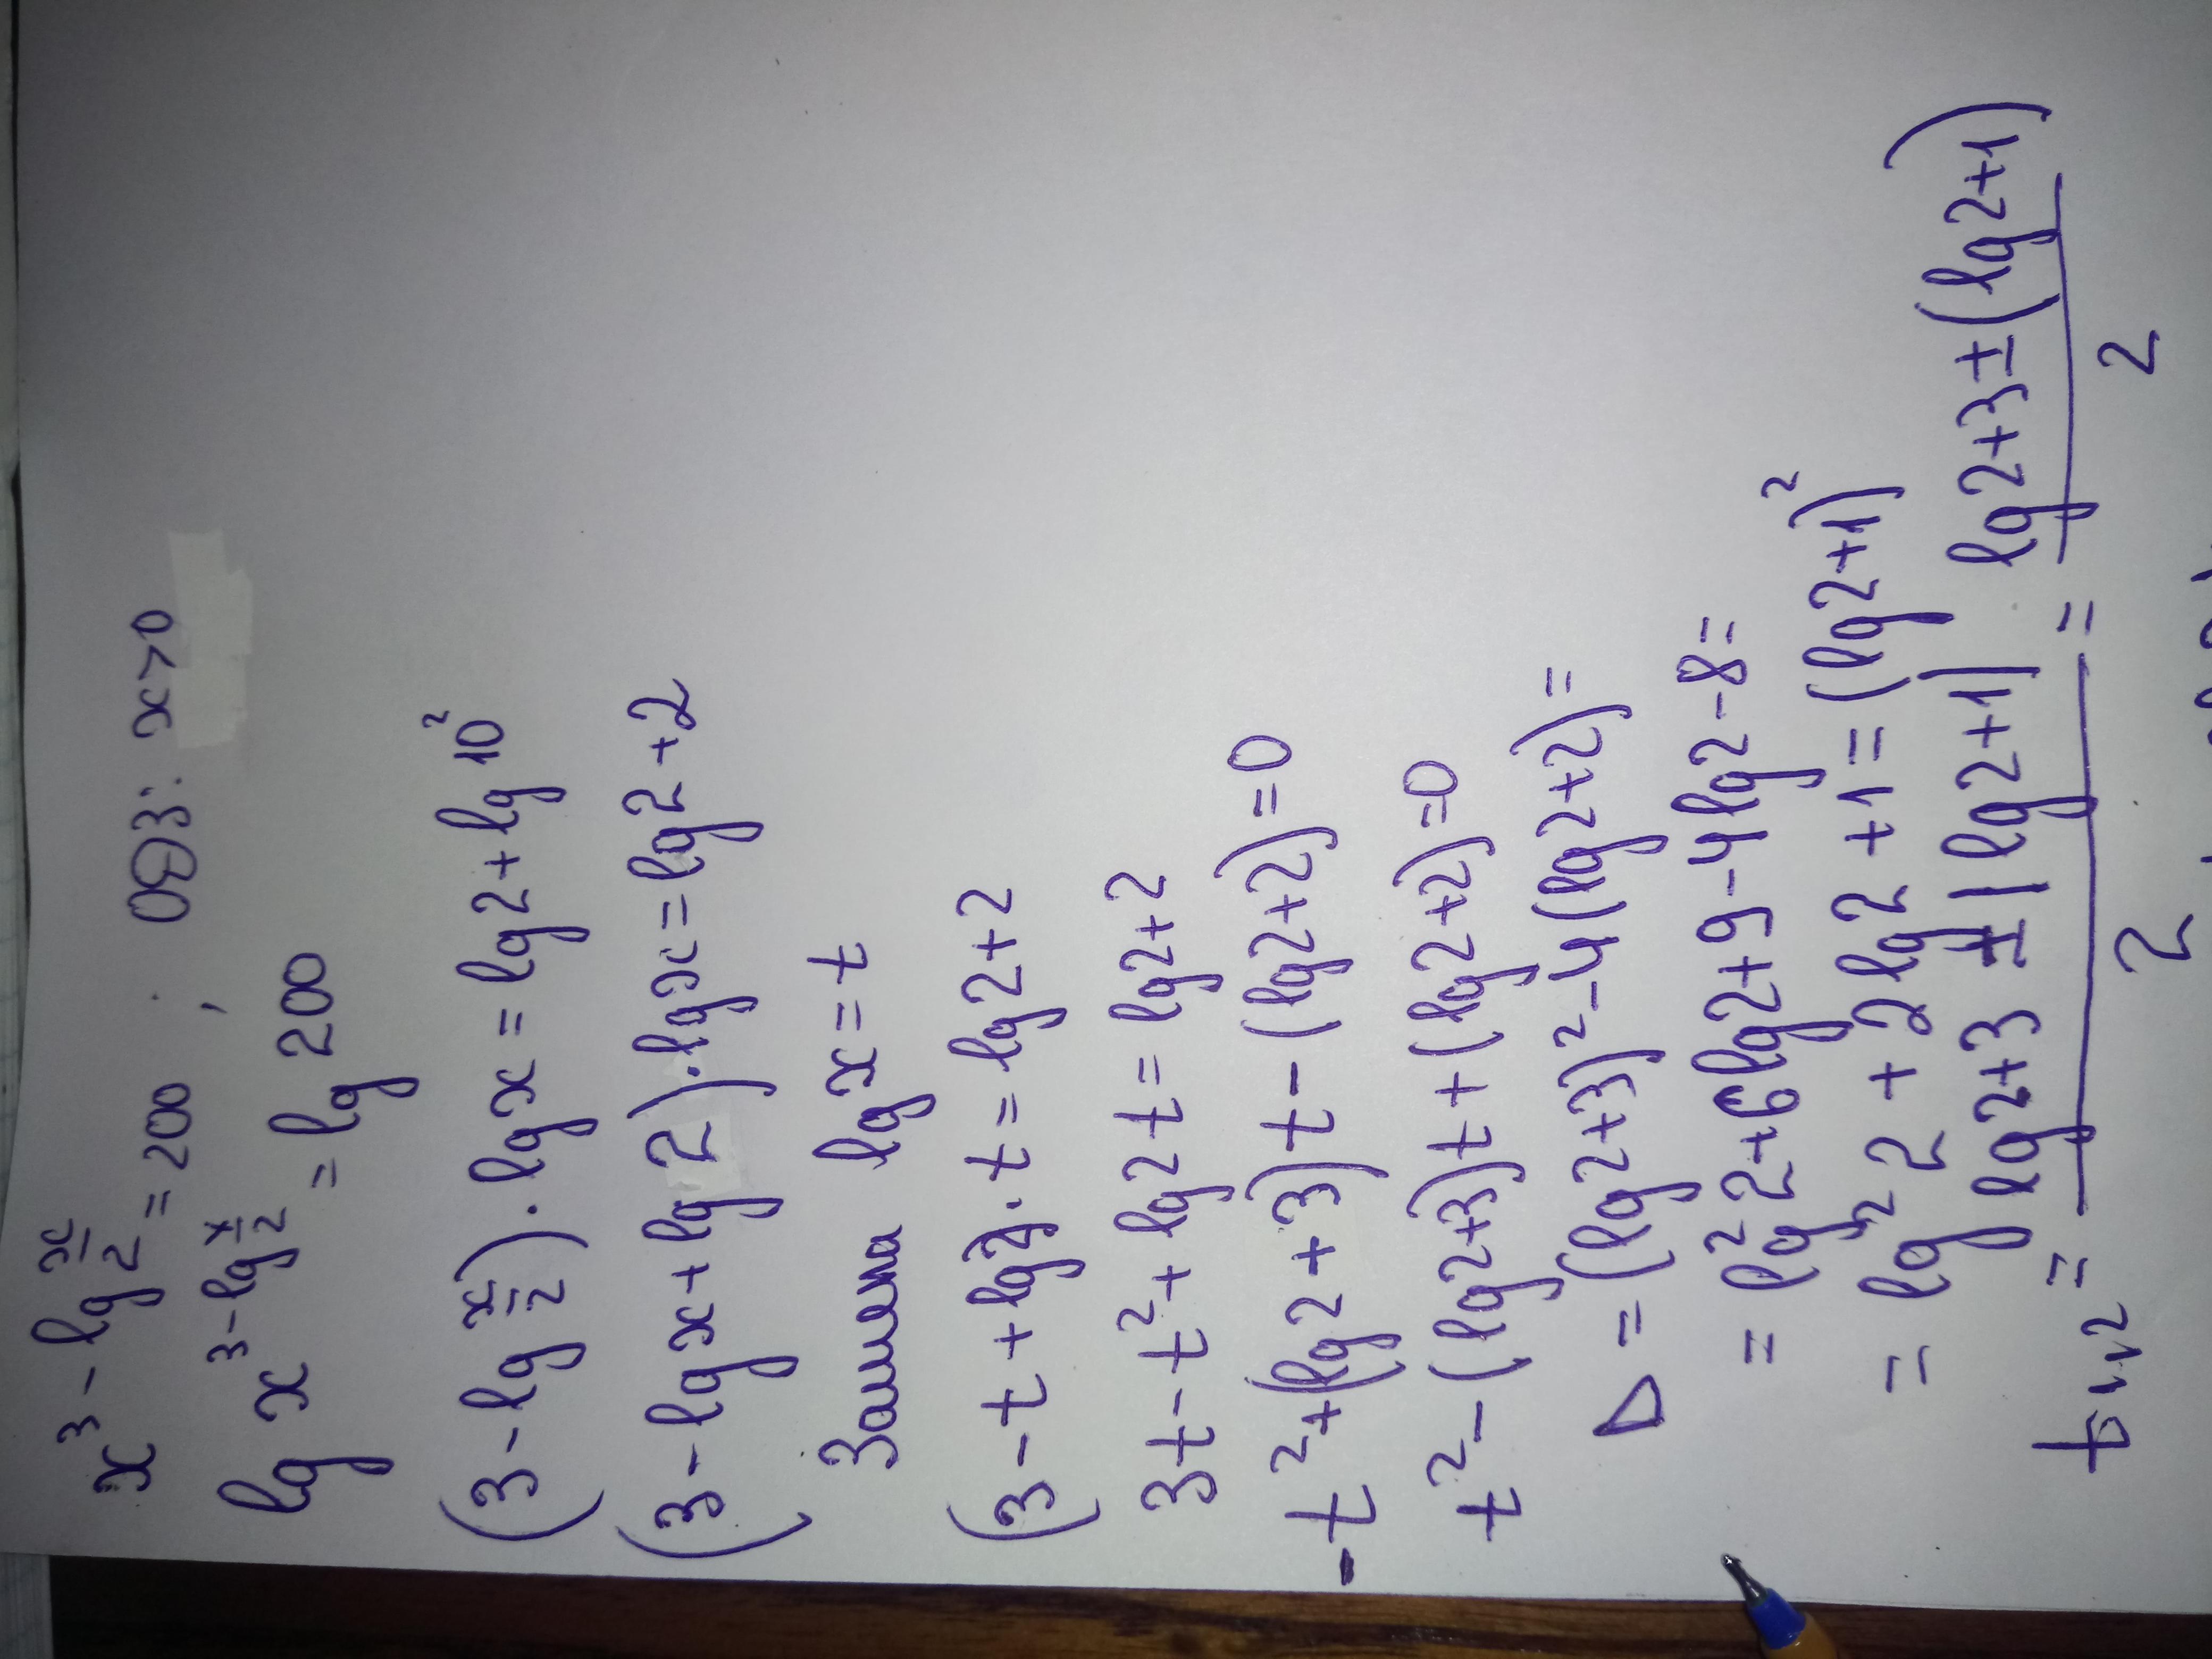 x^{3-lg \frac{x}{2}} = 200, ОДЗ: x>0
lg x^{3-lg \frac{x}{2}} = lg 200
(3-lg \frac{x}{2}) · lg x = lg 2 + lg 10²
(3-lg x + lg 2) · lg x = lg 2 + 2
Замена lg x = t
(3-t+lg 2) · t = lg 2 + 2
3t - t² + lg 2 t = lg 2 + 2
-t² + (lg 2 + 3)t - (lg 2 + 2) = 0
t² - (lg 2 + 3)t + (lg 2 + 2) = 0
D = (lg 2 + 3)² - 4(lg 2 + 2) =
= lg² 2 + 6 lg 2 + 9 - 4 lg 2 - 8 =
= lg² 2 + 2 lg 2 + 1 = (lg 2 + 1)²
t_{1,2} = \frac{lg 2 + 3 ± |lg 2 + 1|}{2} = \frac{lg 2 + 3 ± (lg 2 + 1)}{2}